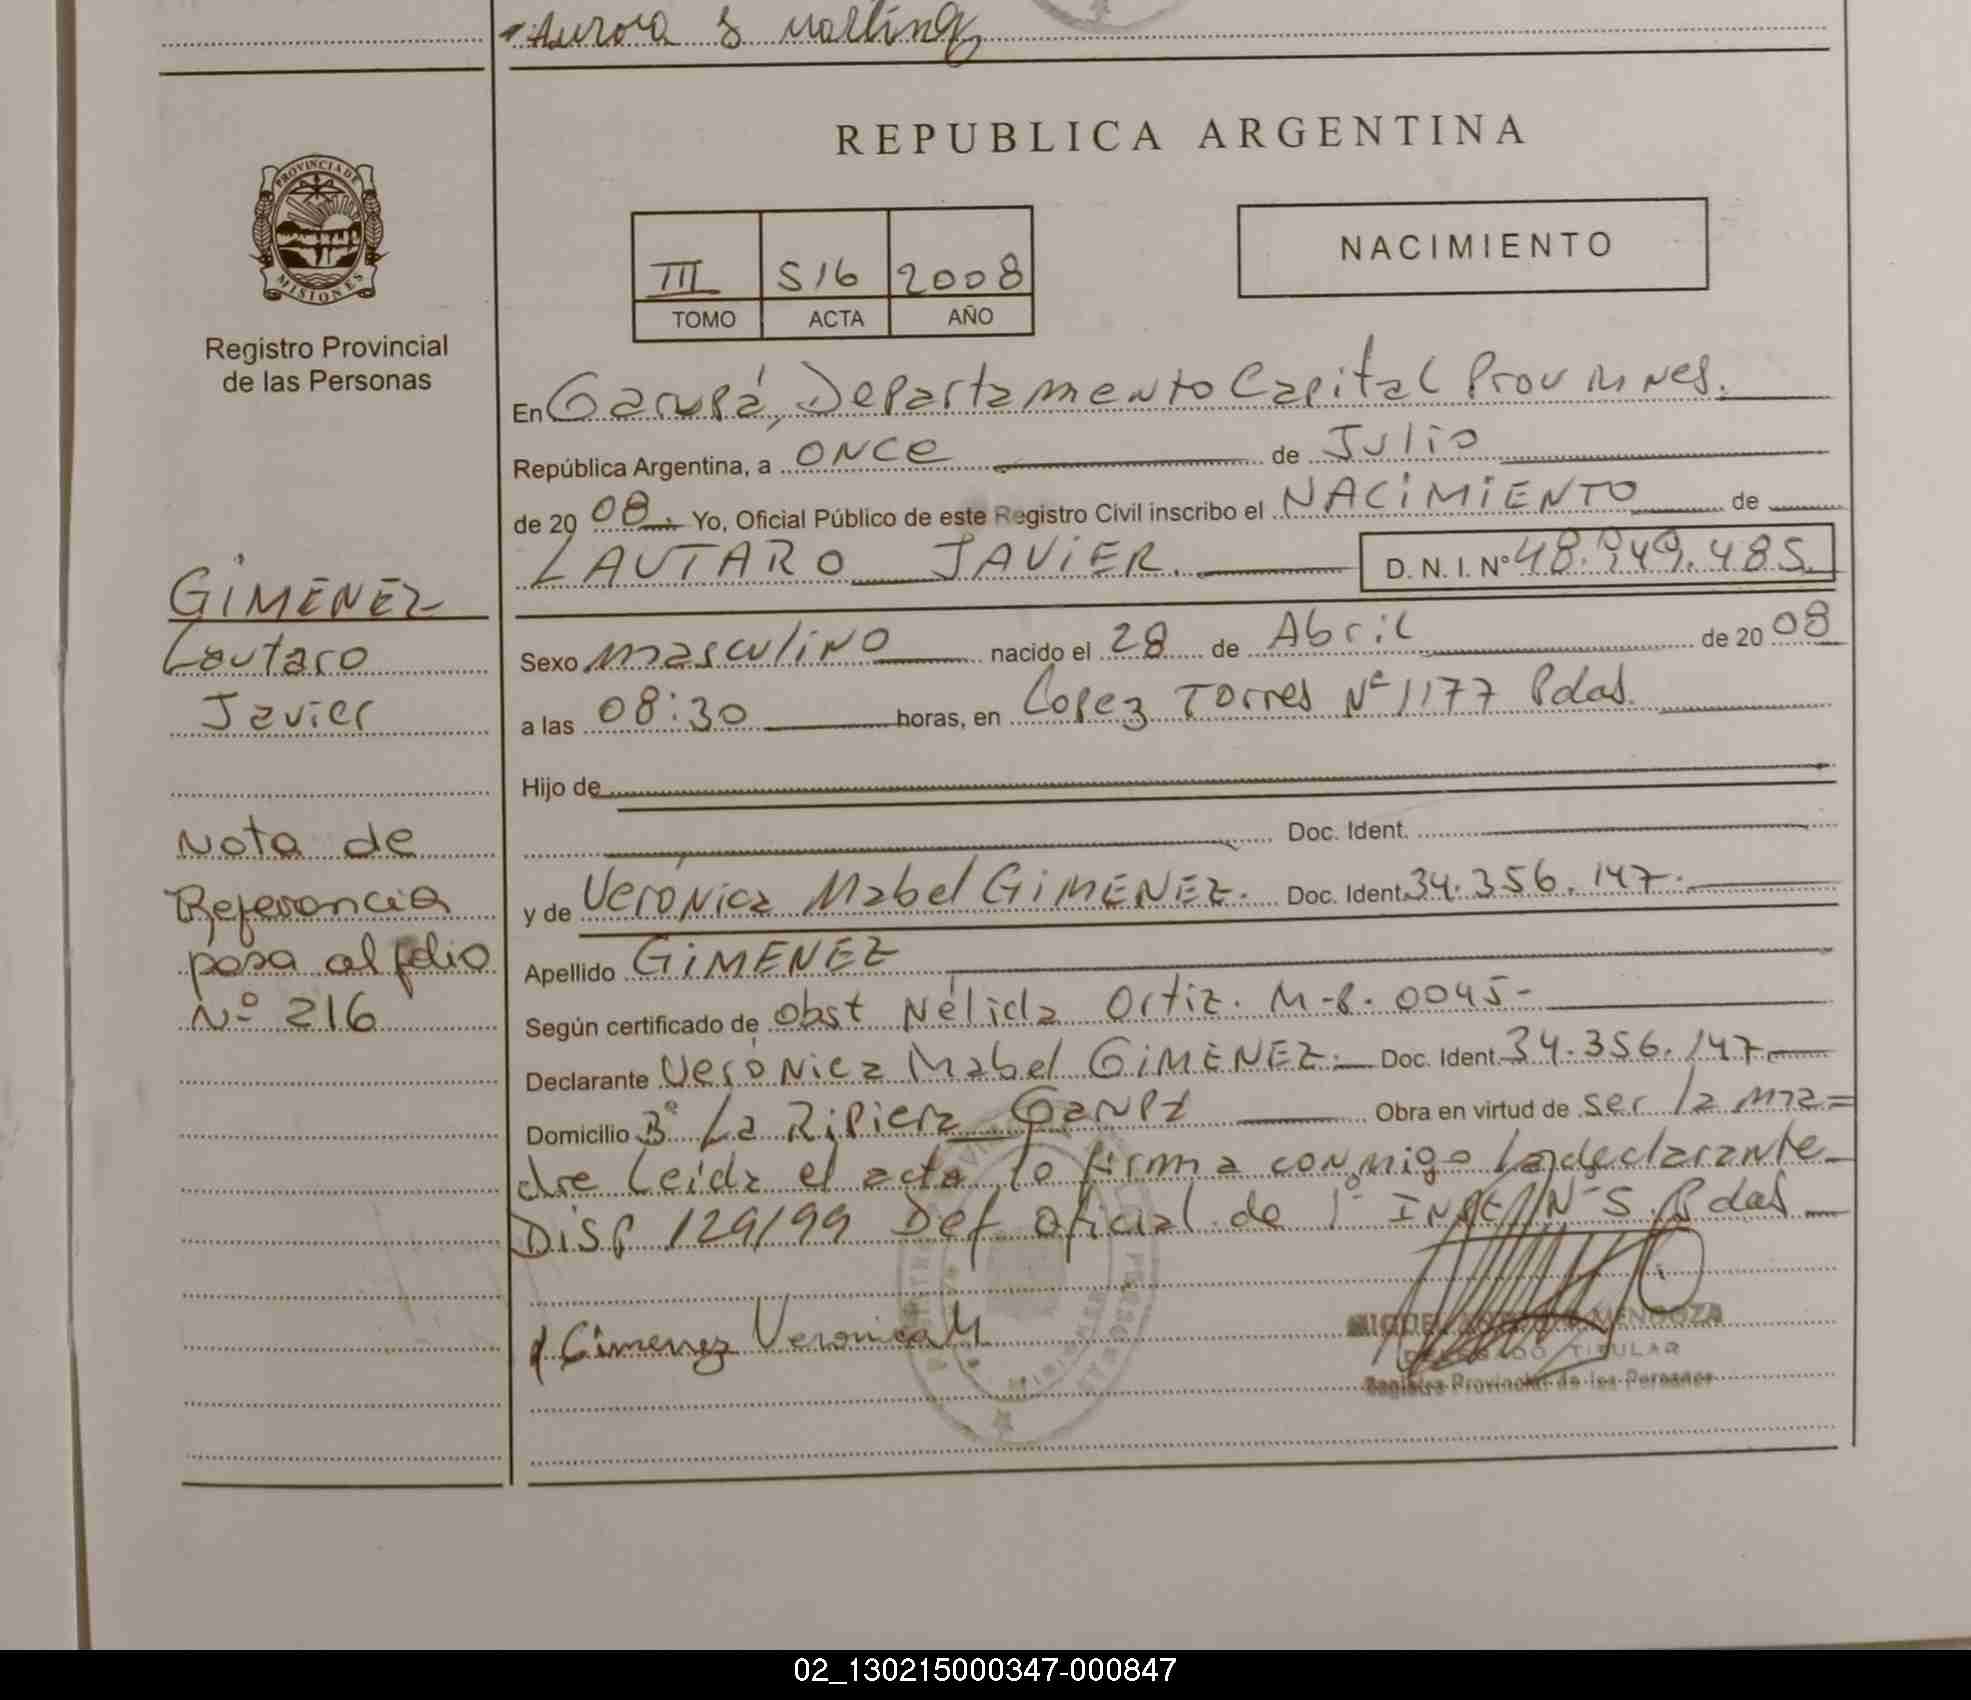 Aurora S
REPUBLICA ARGENTINA
PROVINCIA DE
MISIONES
Registro Provincial
de las Personas
III 516 2008
TOMO ACTA AÑO
NACIMIENTO
En Garupá, Departamento Capital Prov Mnes.
República Argentina, a ONCE de Julio
de 20 08. Yo, Oficial Público de este Registro Civil inscribo el NACIMIENTO de
LAUTARO JAVIER. D. N. I. Nº 48.949.485.
Sexo masculino nacido el 28 de Abril de 20 08
a las 08:30 horas, en Lopez Torres Nº 1177 Pdas.
Hijo de
Doc. Ident.
y de Verónica Mabel GIMENEZ. Doc. Ident. 34.356.147.
Apellido GIMENEZ
Según certificado de Obst Nélida Ortiz. M-P. 0045-
Declarante Verónica Mabel GIMENEZ. Doc. Ident. 34.356.147
Domicilio Bº La Ripiera Garupá Obra en virtud de ser la ma=
dre Leida el acta lo firma conmigo la declarante
Disp 129/99 Def oficial de 1º Nº 5 Pdas
Gimenez Veronica M
MENDOZA
DELEGADO TITULAR
Registro Provincial de las Personas
GIMENEZ
Lautaro
Javier
Nota de
Referencia
pasa al folio
Nº 216
02_130215000347-000847